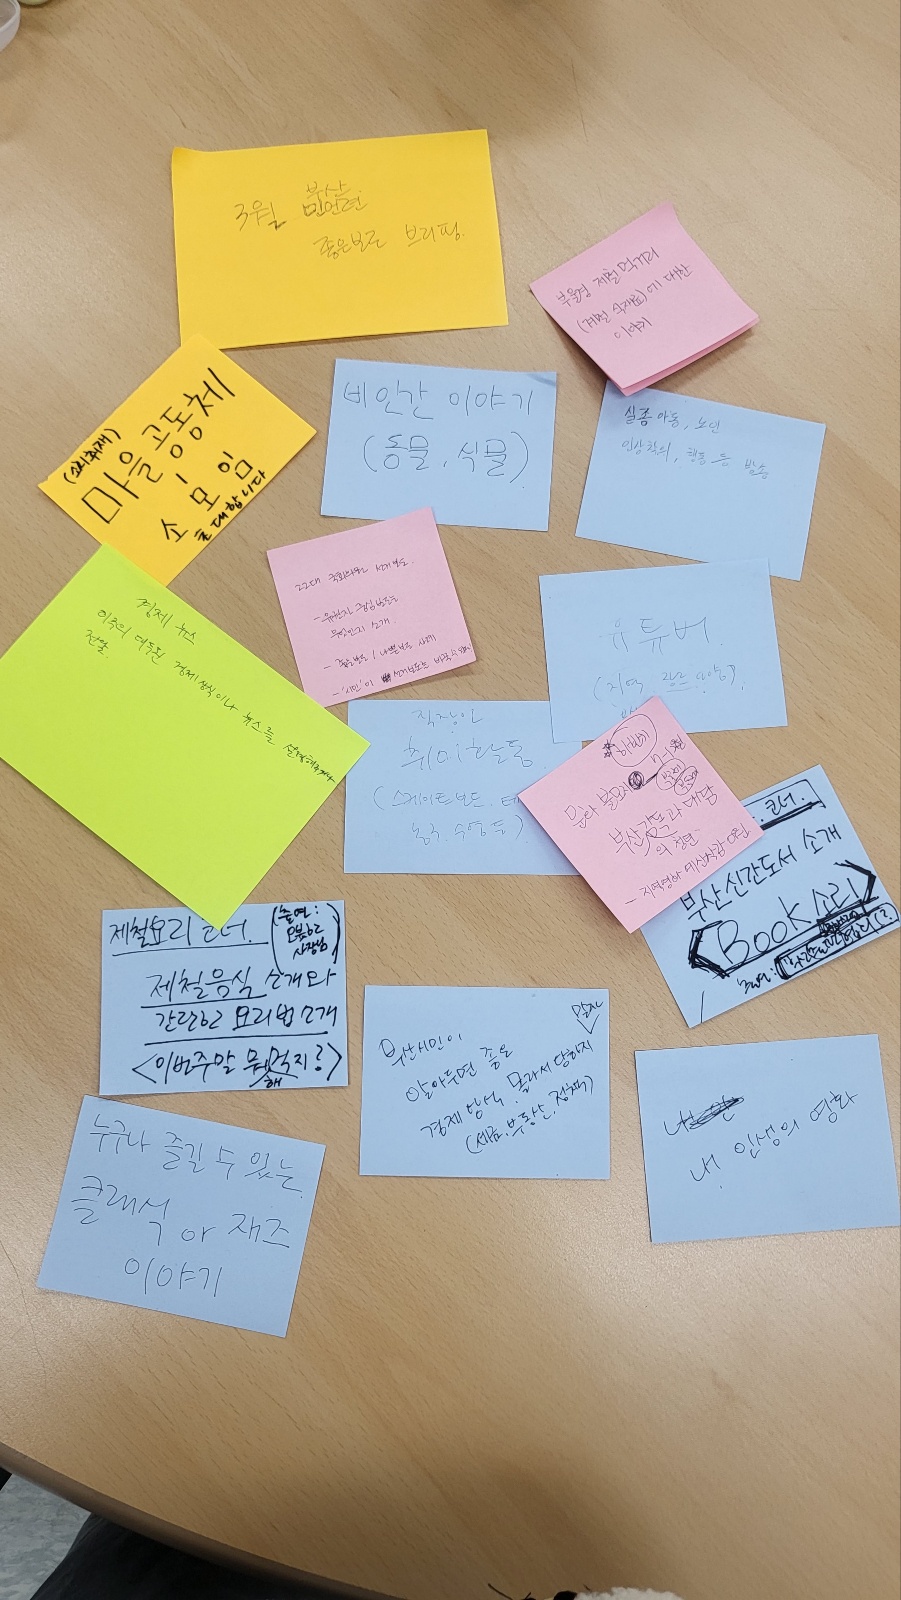 3월 부산
민언련
좋은보도 브리핑.
부울경 제철 먹거리
(제철 식재료)에 대한
이야기
(소리취재)
마을공동체
소모임
초대합니다
비인간 이야기
(동물, 식물)
실종 아동, 노인
인상착의, 행동 등 방송
22대 국회의원 선거보도.
- 유권자 중심 보도를
소개.
- 좋은보도 / 나쁜보도 사례
- '시민'이 선거보도를 바꿀 수 있다
경제 뉴스
이주의 경제상식이나 뉴스를
전달.
유튜버
(지역
직장인
취미활동
(스케이트보드, 테
농구, 수영 등)
문화 불모지
부산감독과 대담
의 청년
- 지역영화 예산삭감 0원
코너.
부산신간도서 소개
<Book소리>
제철요리 코너.
(출연:
사장님)
제철음식 소개와
간단한 요리법 소개
<이번주말 뭐 해먹지?>
부산시민이
알아두면 좋은
경제 상식. 몰라서 당하지 말자
(세금, 부동산, 정책)
내 인생의 영화
누구나 즐길 수 있는
클래식 or 재즈
이야기